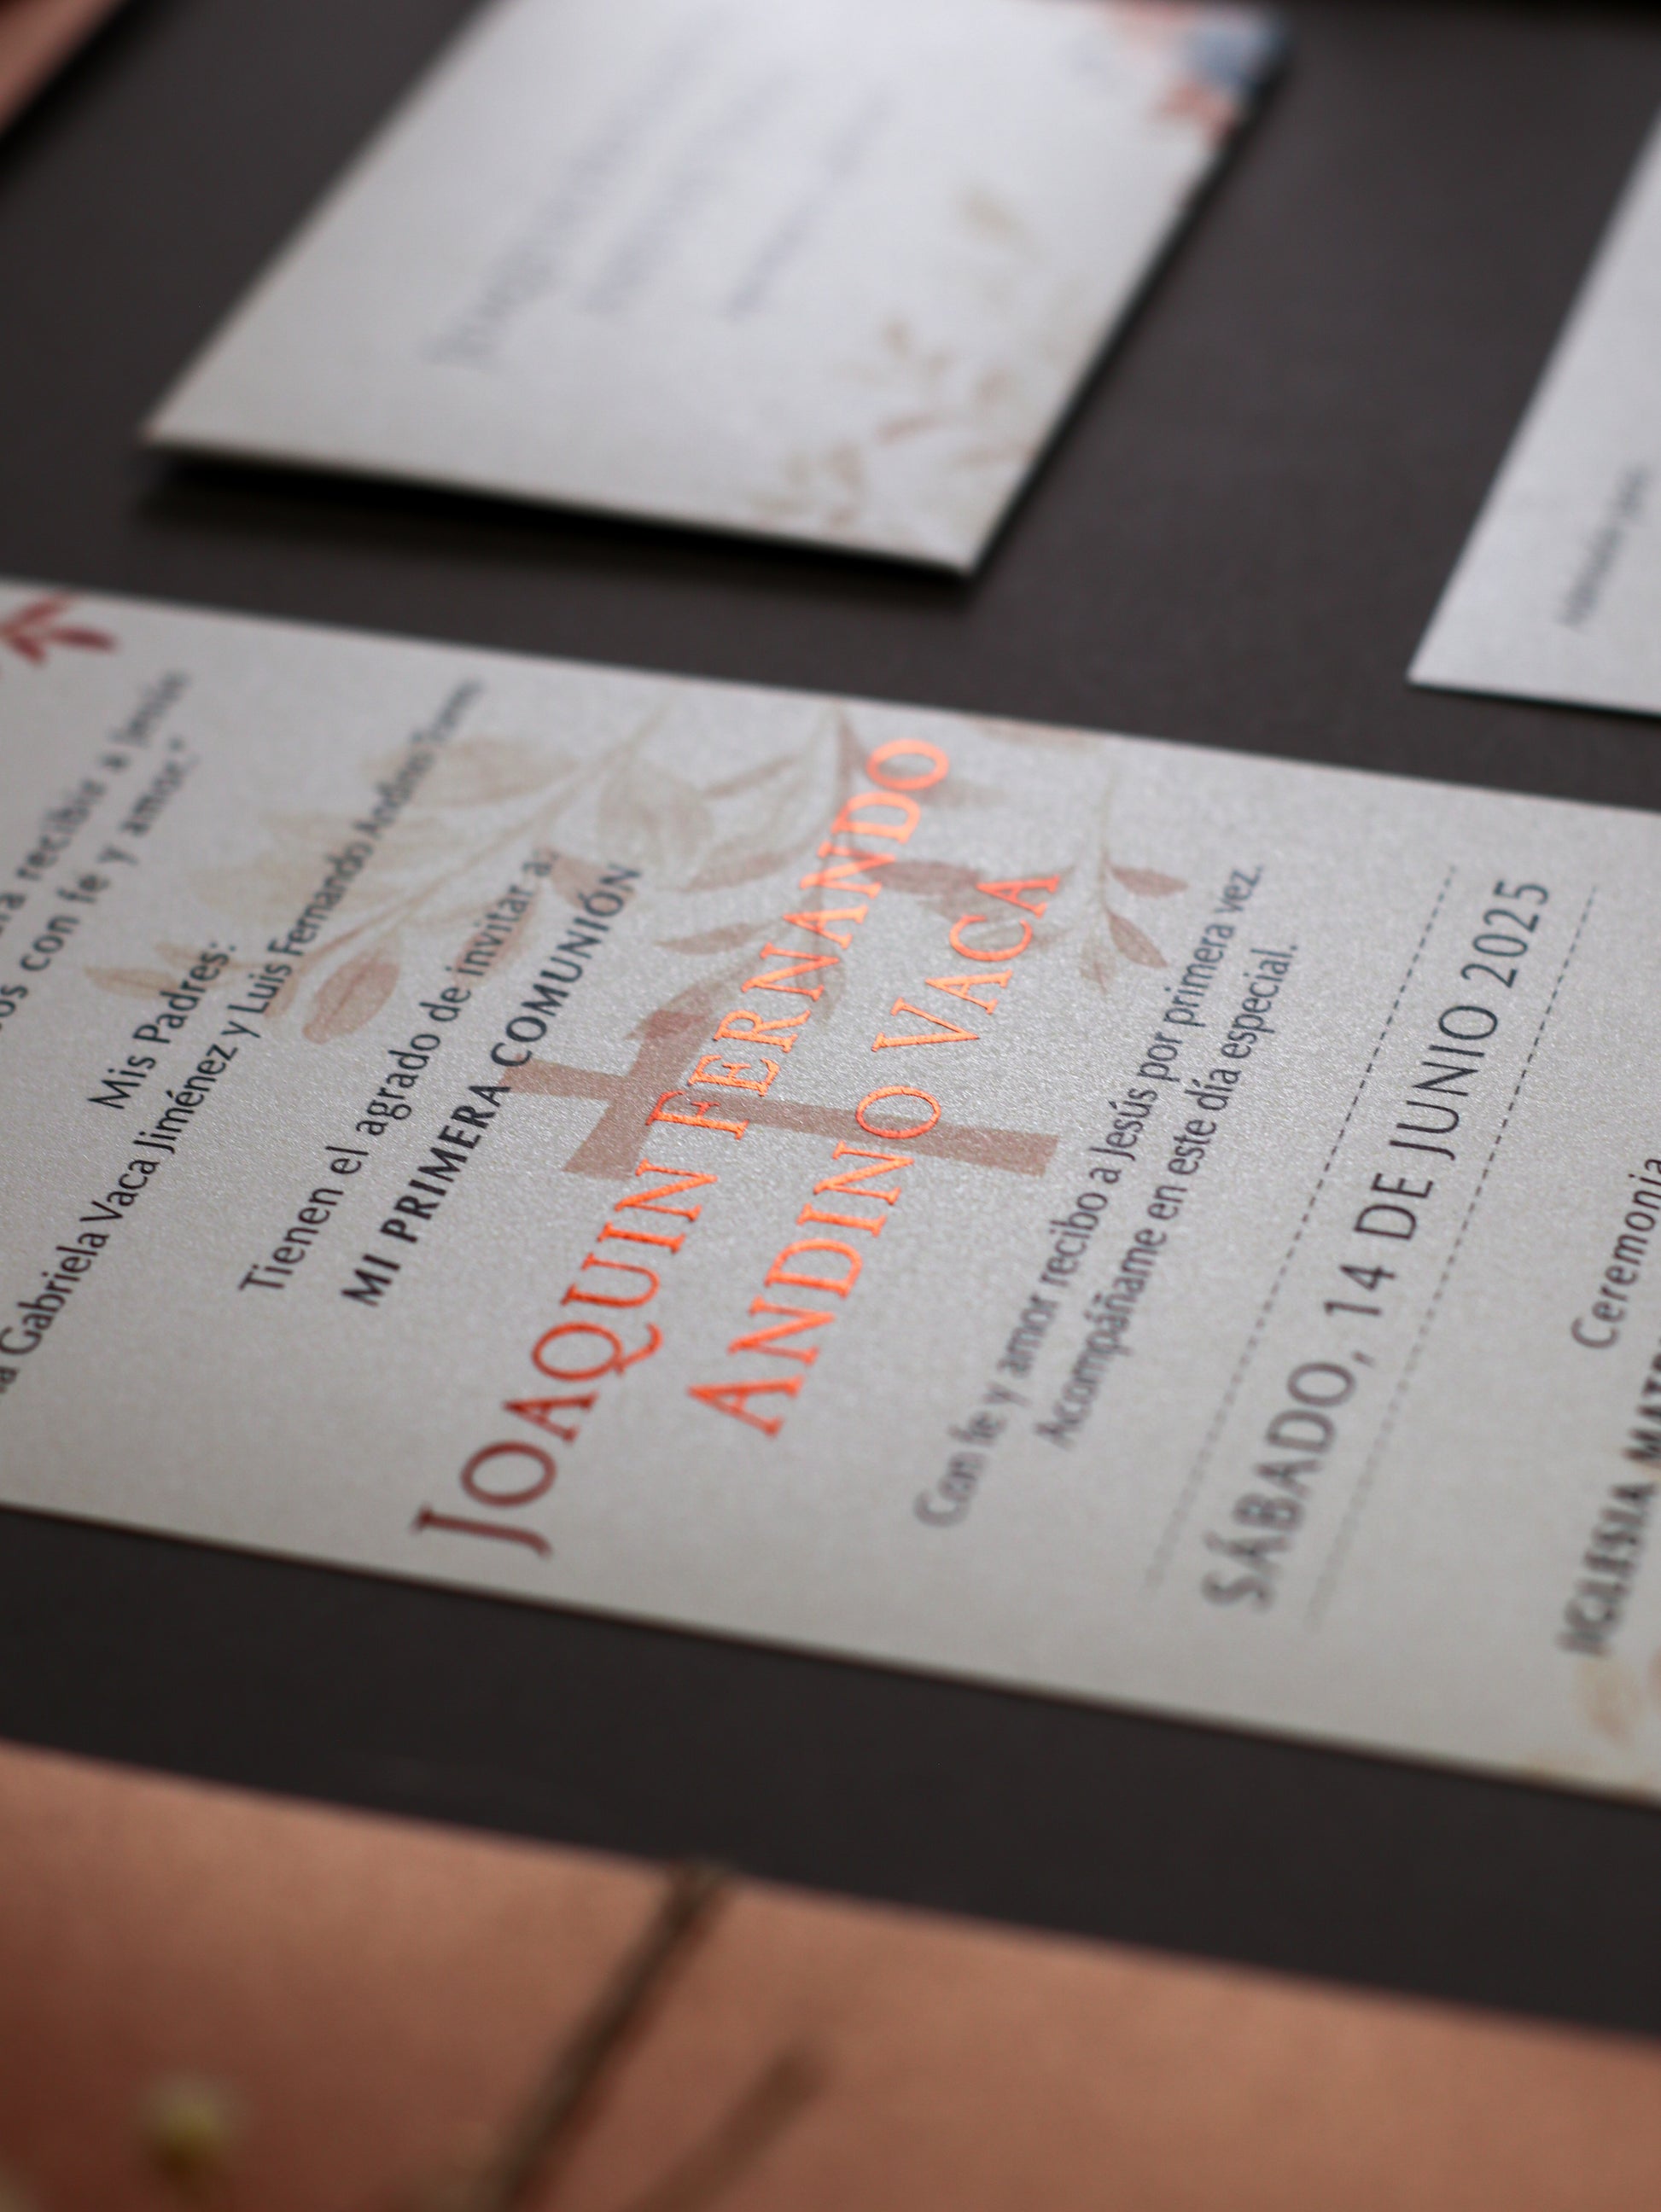 recibir a Jesús
con fe y amor."
Mis Padres:
Gabriela Vaca Jiménez y Luis Fernando Andino Torres
Tienen el agrado de invitar a:
MI PRIMERA COMUNIÓN
JOAQUIN FERNANDO
ANDINO VACA
Con fe y amor recibo a Jesús por primera vez.
Accompáñame en este día especial.
SÁBADO, 14 DE JUNIO 2025
Ceremonia
IGLESIA